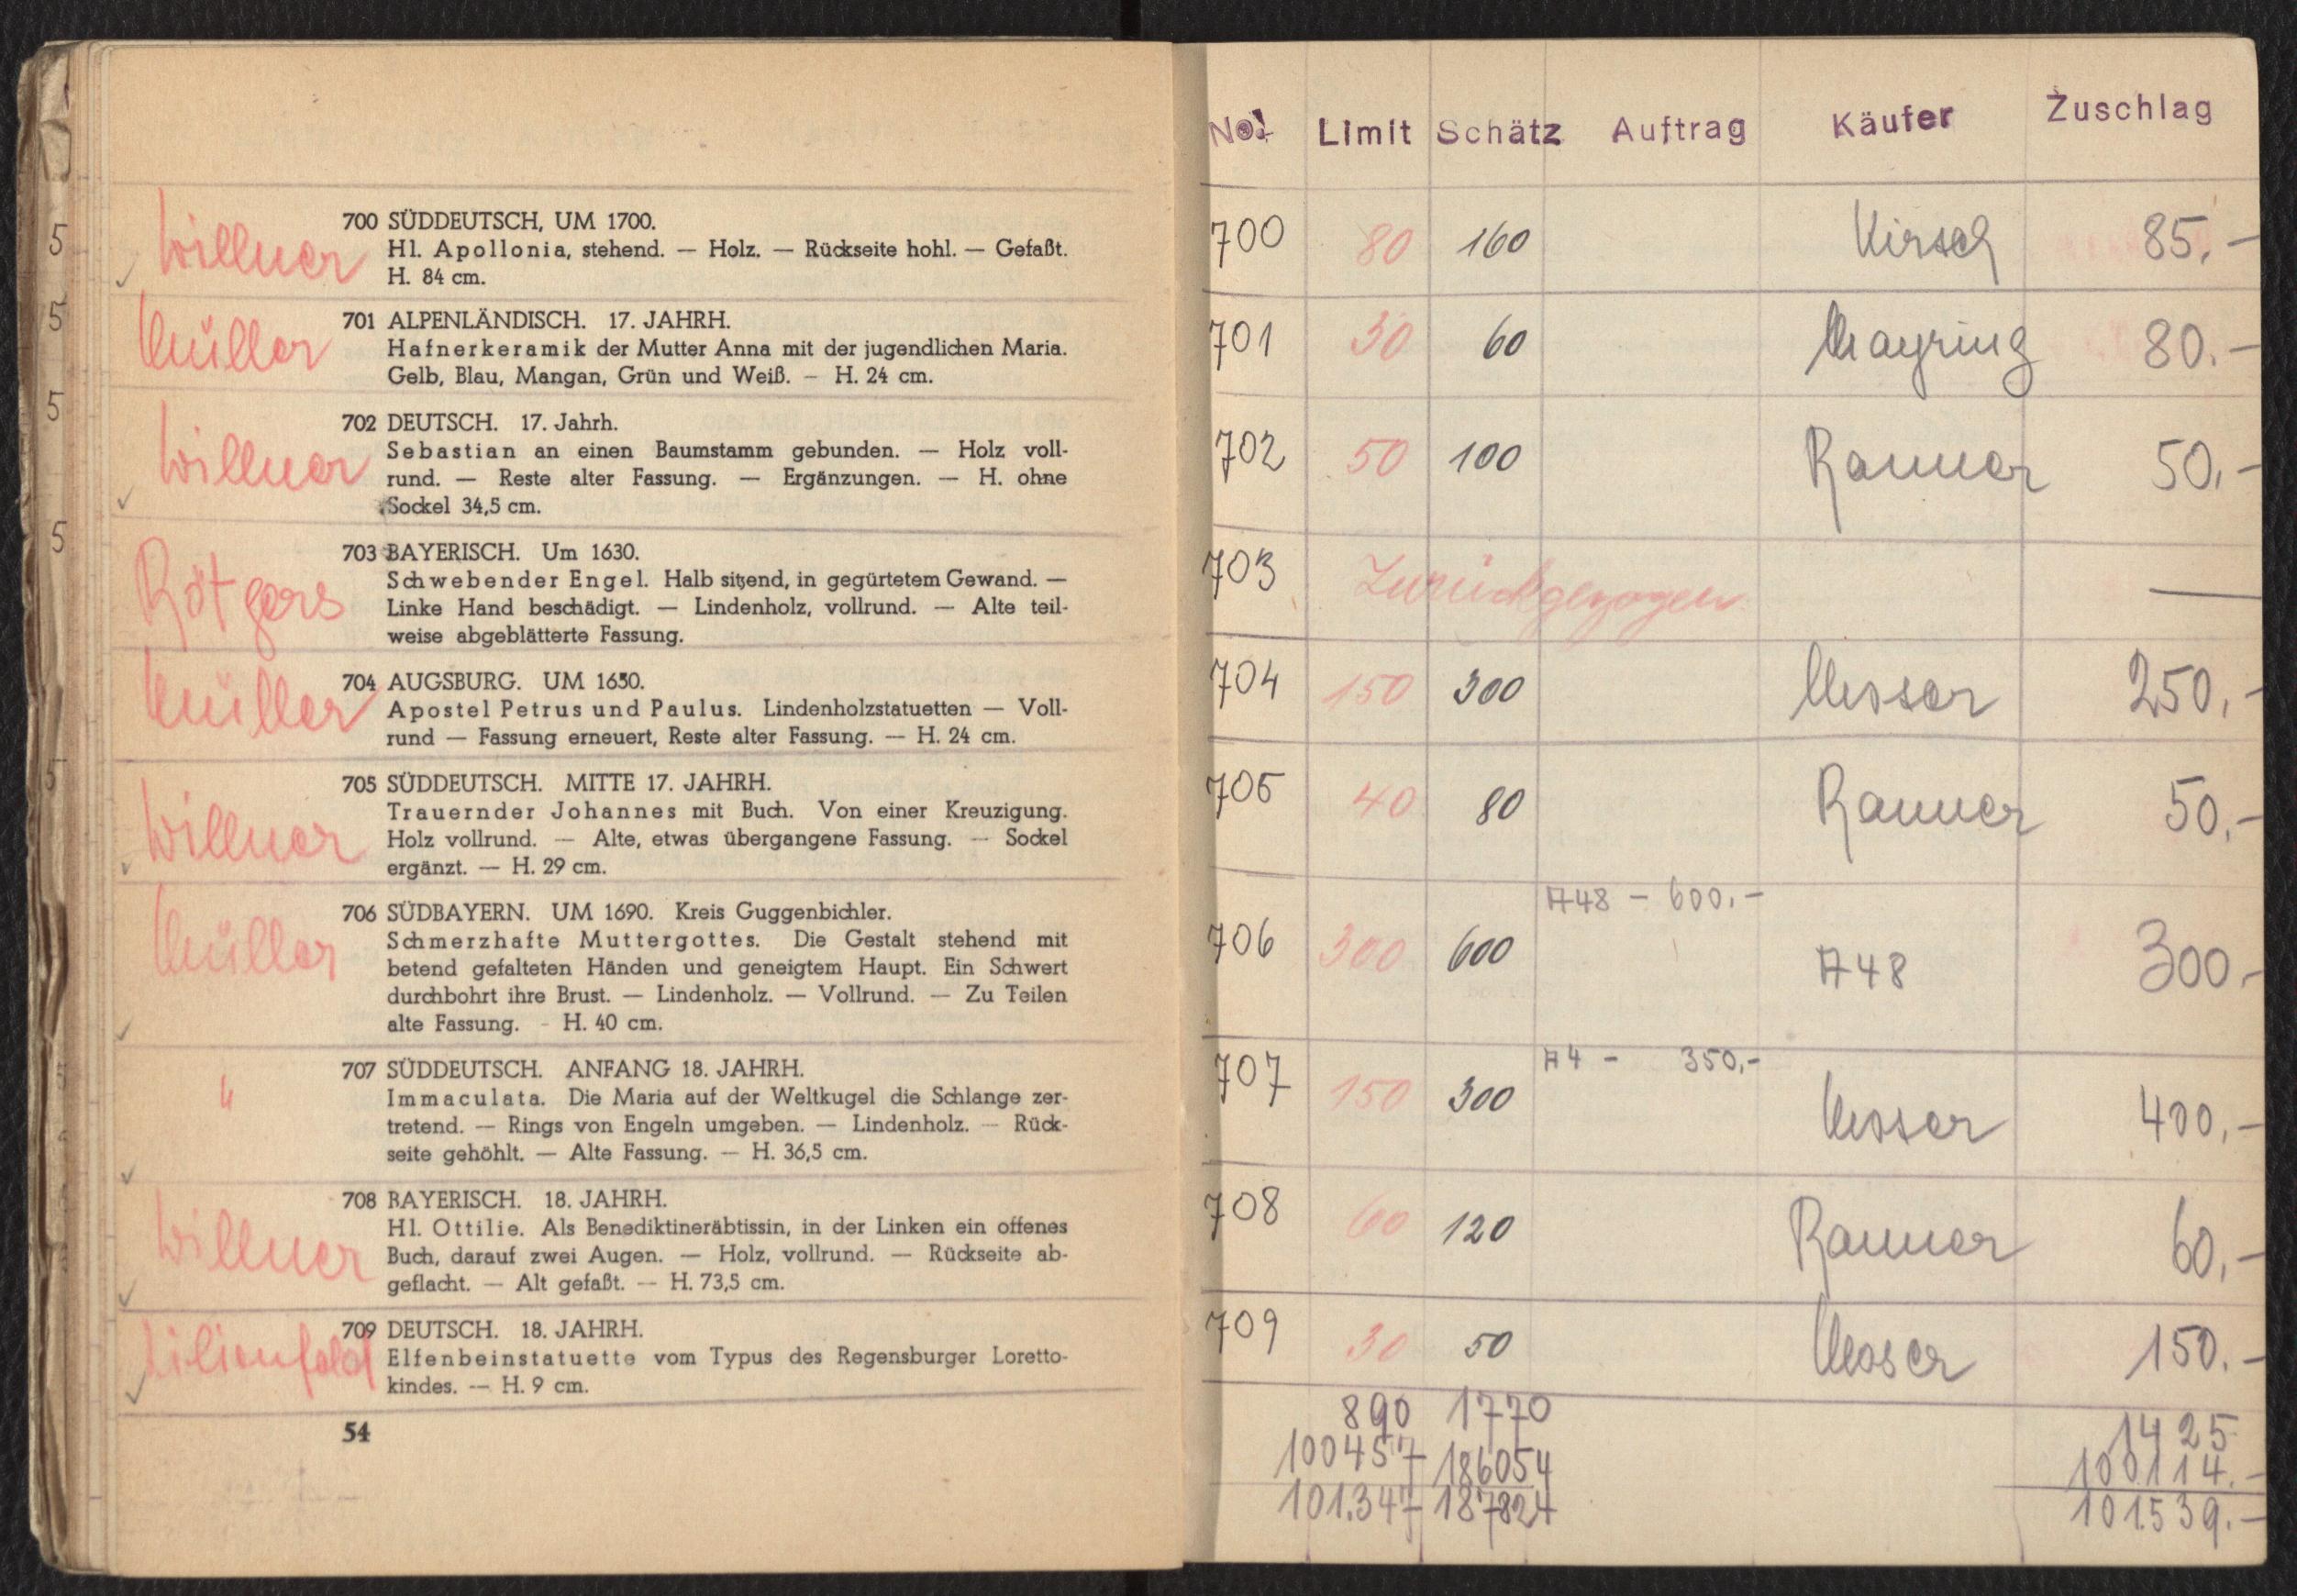 5
5
5
5
5
Willner
700 SÜDDEUTSCH, UM 1700.
Hl. Apollonia, stehend. — Holz. — Rückseite hohl. — Gefaßt.
H. 84 cm.
Müller
701 ALPENLÄNDISCH. 17. JAHRH.
Hafnerkeramik der Mutter Anna mit der jugendlichen Maria.
Gelb, Blau, Mangan, Grün und Weiß. — H. 24 cm.
Willner
702 DEUTSCH. 17. Jahrh.
Sebastian an einen Baumstamm gebunden. — Holz voll-
rund. — Reste alter Fassung. — Ergänzungen. — H. ohne
Sockel 34,5 cm.
Rötgers
703 BAYERISCH. Um 1630.
Schwebender Engel. Halb sitzend, in gegürtetem Gewand. —
Linke Hand beschädigt. — Lindenholz, vollrund. — Alte teil-
weise abgeblätterte Fassung.
Müller
704 AUGSBURG. UM 1650.
Apostel Petrus und Paulus. Lindenholzstatuetten — Voll-
rund — Fassung erneuert, Reste alter Fassung. — H. 24 cm.
Willner
705 SÜDDEUTSCH. MITTE 17. JAHRH.
Trauernder Johannes mit Buch. Von einer Kreuzigung.
Holz vollrund. — Alte, etwas übergangene Fassung. — Sockel
ergänzt. — H. 29 cm.
Müller
706 SÜDBAYERN. UM 1690. Kreis Guggenbichler.
Schmerzhafte Muttergottes. Die Gestalt stehend mit
betend gefalteten Händen und geneigtem Haupt. Ein Schwert
durchbohrt ihre Brust. — Lindenholz. — Vollrund. — Zu Teilen
alte Fassung. - H. 40 cm.
"
707 SÜDDEUTSCH. ANFANG 18. JAHRH.
Immaculata. Die Maria auf der Weltkugel die Schlange zer-
tretend. — Rings von Engeln umgeben. — Lindenholz. — Rück-
seite gehöhlt. — Alte Fassung. — H. 36,5 cm.
Willner
708 BAYERISCH. 18. JAHRH.
Hl. Ottilie. Als Benediktineräbtissin, in der Linken ein offenes
Buch, darauf zwei Augen. — Holz, vollrund. — Rückseite ab-
geflacht. — Alt gefaßt. — H. 73,5 cm.
Lilienfeld
709 DEUTSCH. 18. JAHRH.
Elfenbeinstatuette vom Typus des Regensburger Loretto-
kindes. — H. 9 cm.
54
No. Limit Schätz Auftrag Käufer Zuschlag
700 80 160 Kirsch 85.-
701 30 60 Mayring 80.-
702 50 100 Ranner 50,-
703 Zurückgezogen —
704 150 300 Messer 250,-
705 40 80 Ranner 50,-
A48 - 600.-
706 300 600 A48 300.-
A4 - 350,-
707 150 300 Messer 400,-
708 60 120 Ranner 60,-
709 30 50 Messer 150.-
890 1770 1425
100457 186054 100.114.-
101.347 187824 101.539.-